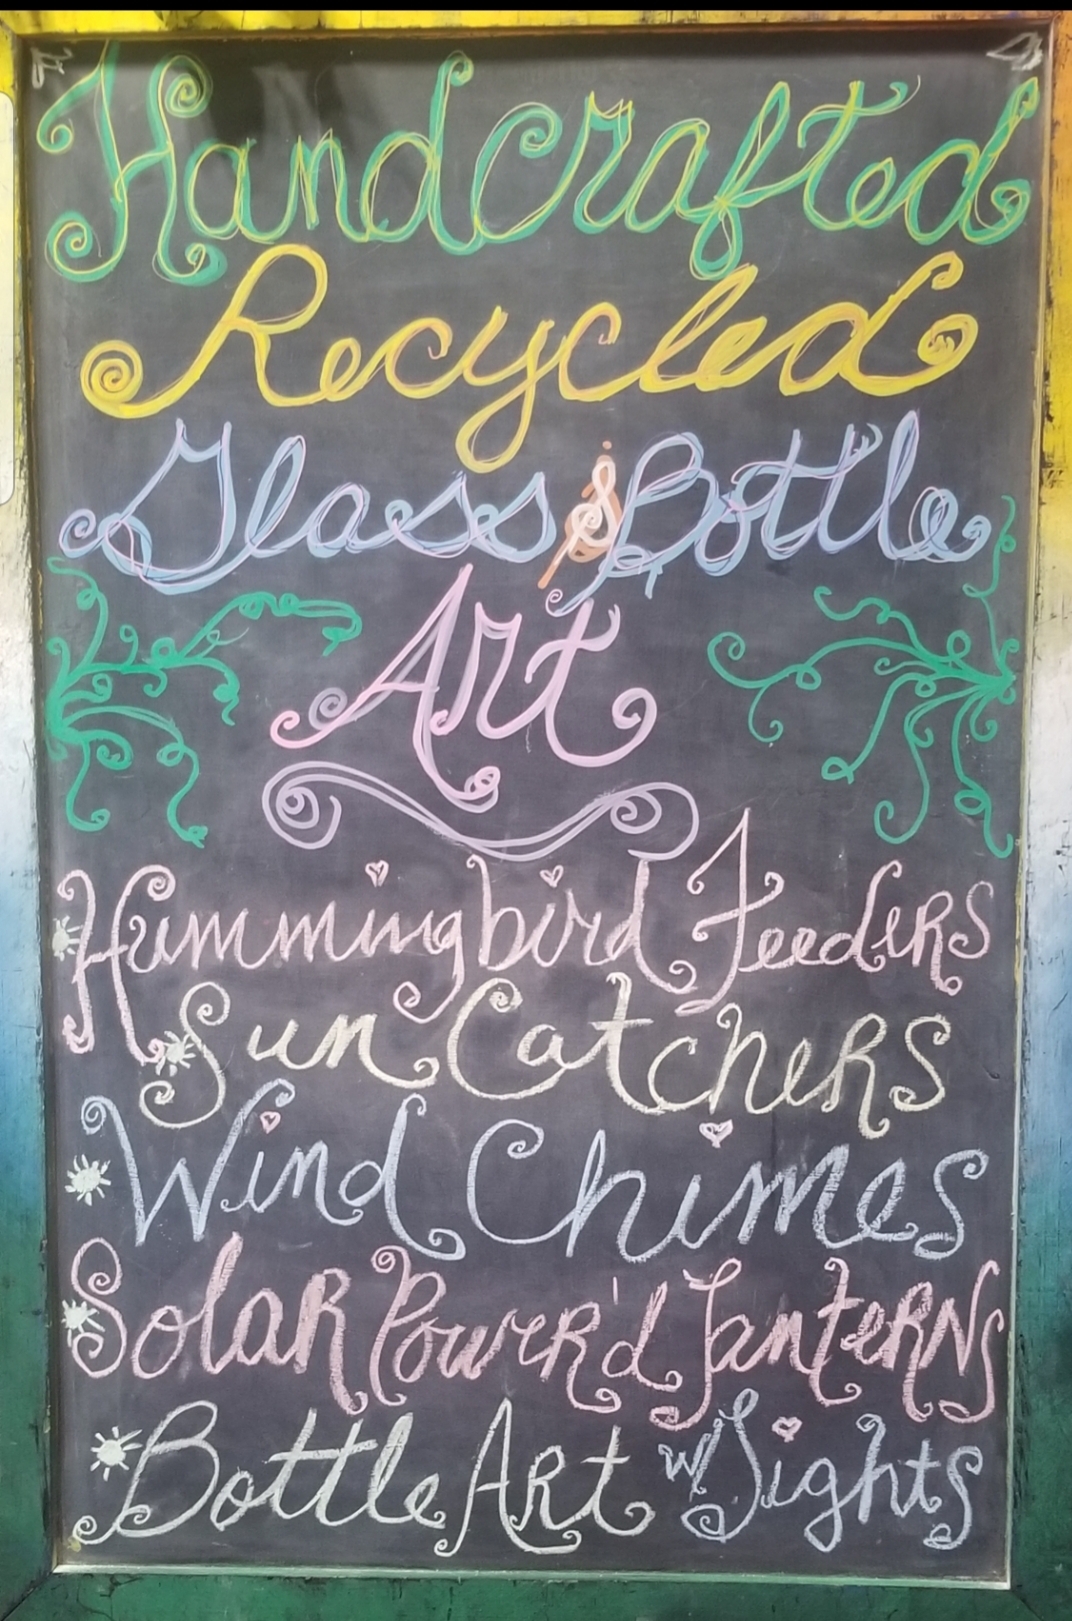 Handcrafted
Recycled
Glass & Bottle
Art
Hummingbird Feeders
Sun Catchers
Wind Chimes
Solar Power'd Lanterns
Bottle Art w/ Lights